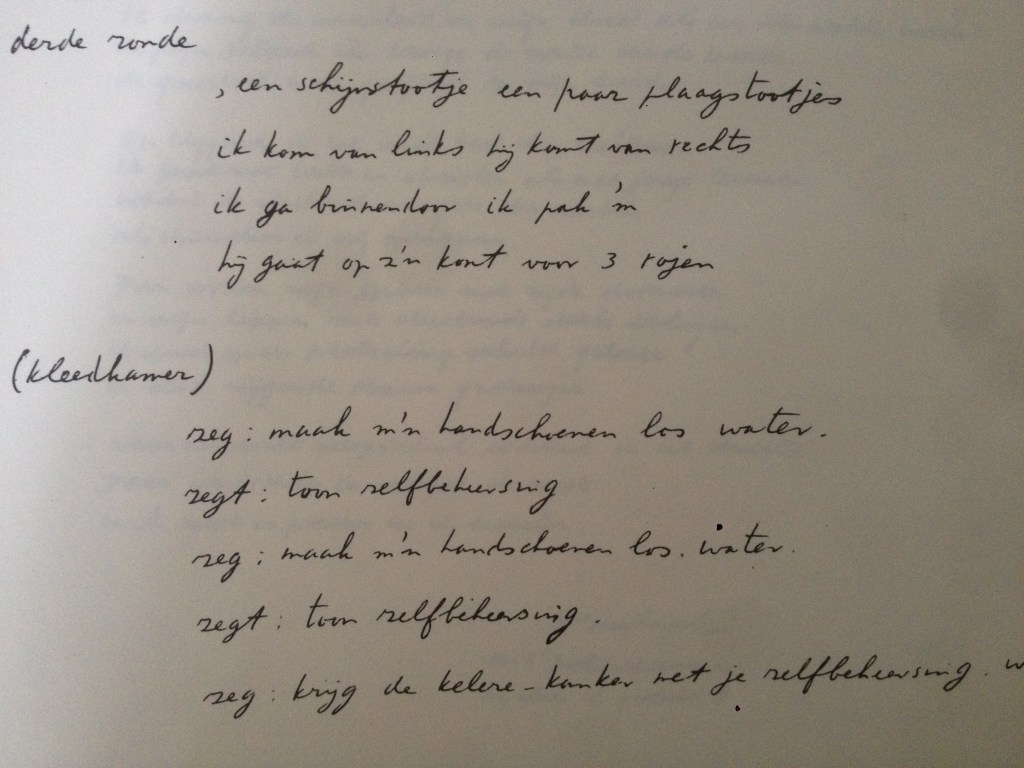 derde ronde
, een schijnstootje een paar plaagstootjes
ik kom van links hij komt van rechts
ik ga binnendoor ik pak 'm
hij gaat op z'n kont voor 3 rojen
(kleedkamer)
zeg: maak m'n handschoenen los water.
zegt: toon zelfbeheersing
zeg: maak m'n handschoenen los. water.
zegt: toon zelfbeheersing.
zeg: krijg de kelere-kanker met je zelfbeheersing. w